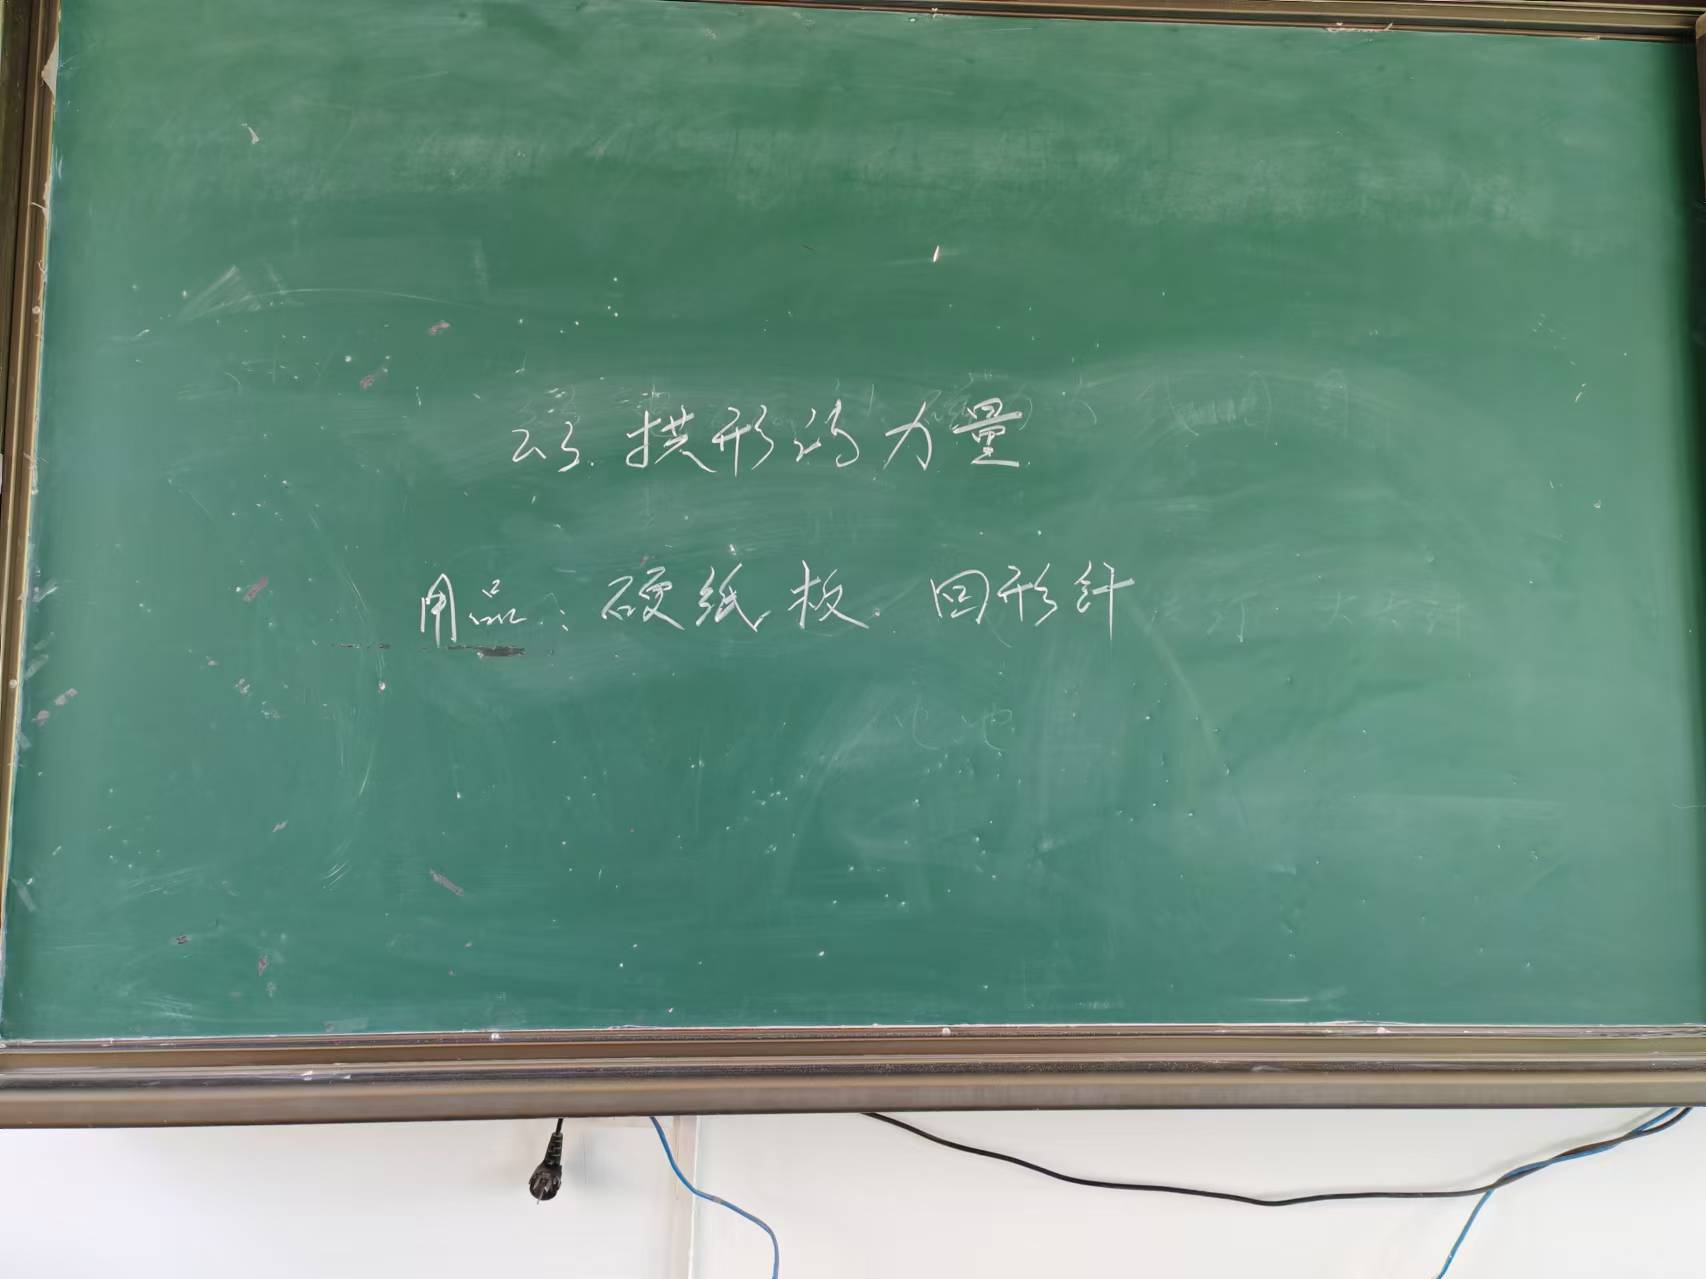 2.3. 拱形的力量
用品：硬纸板 回形针